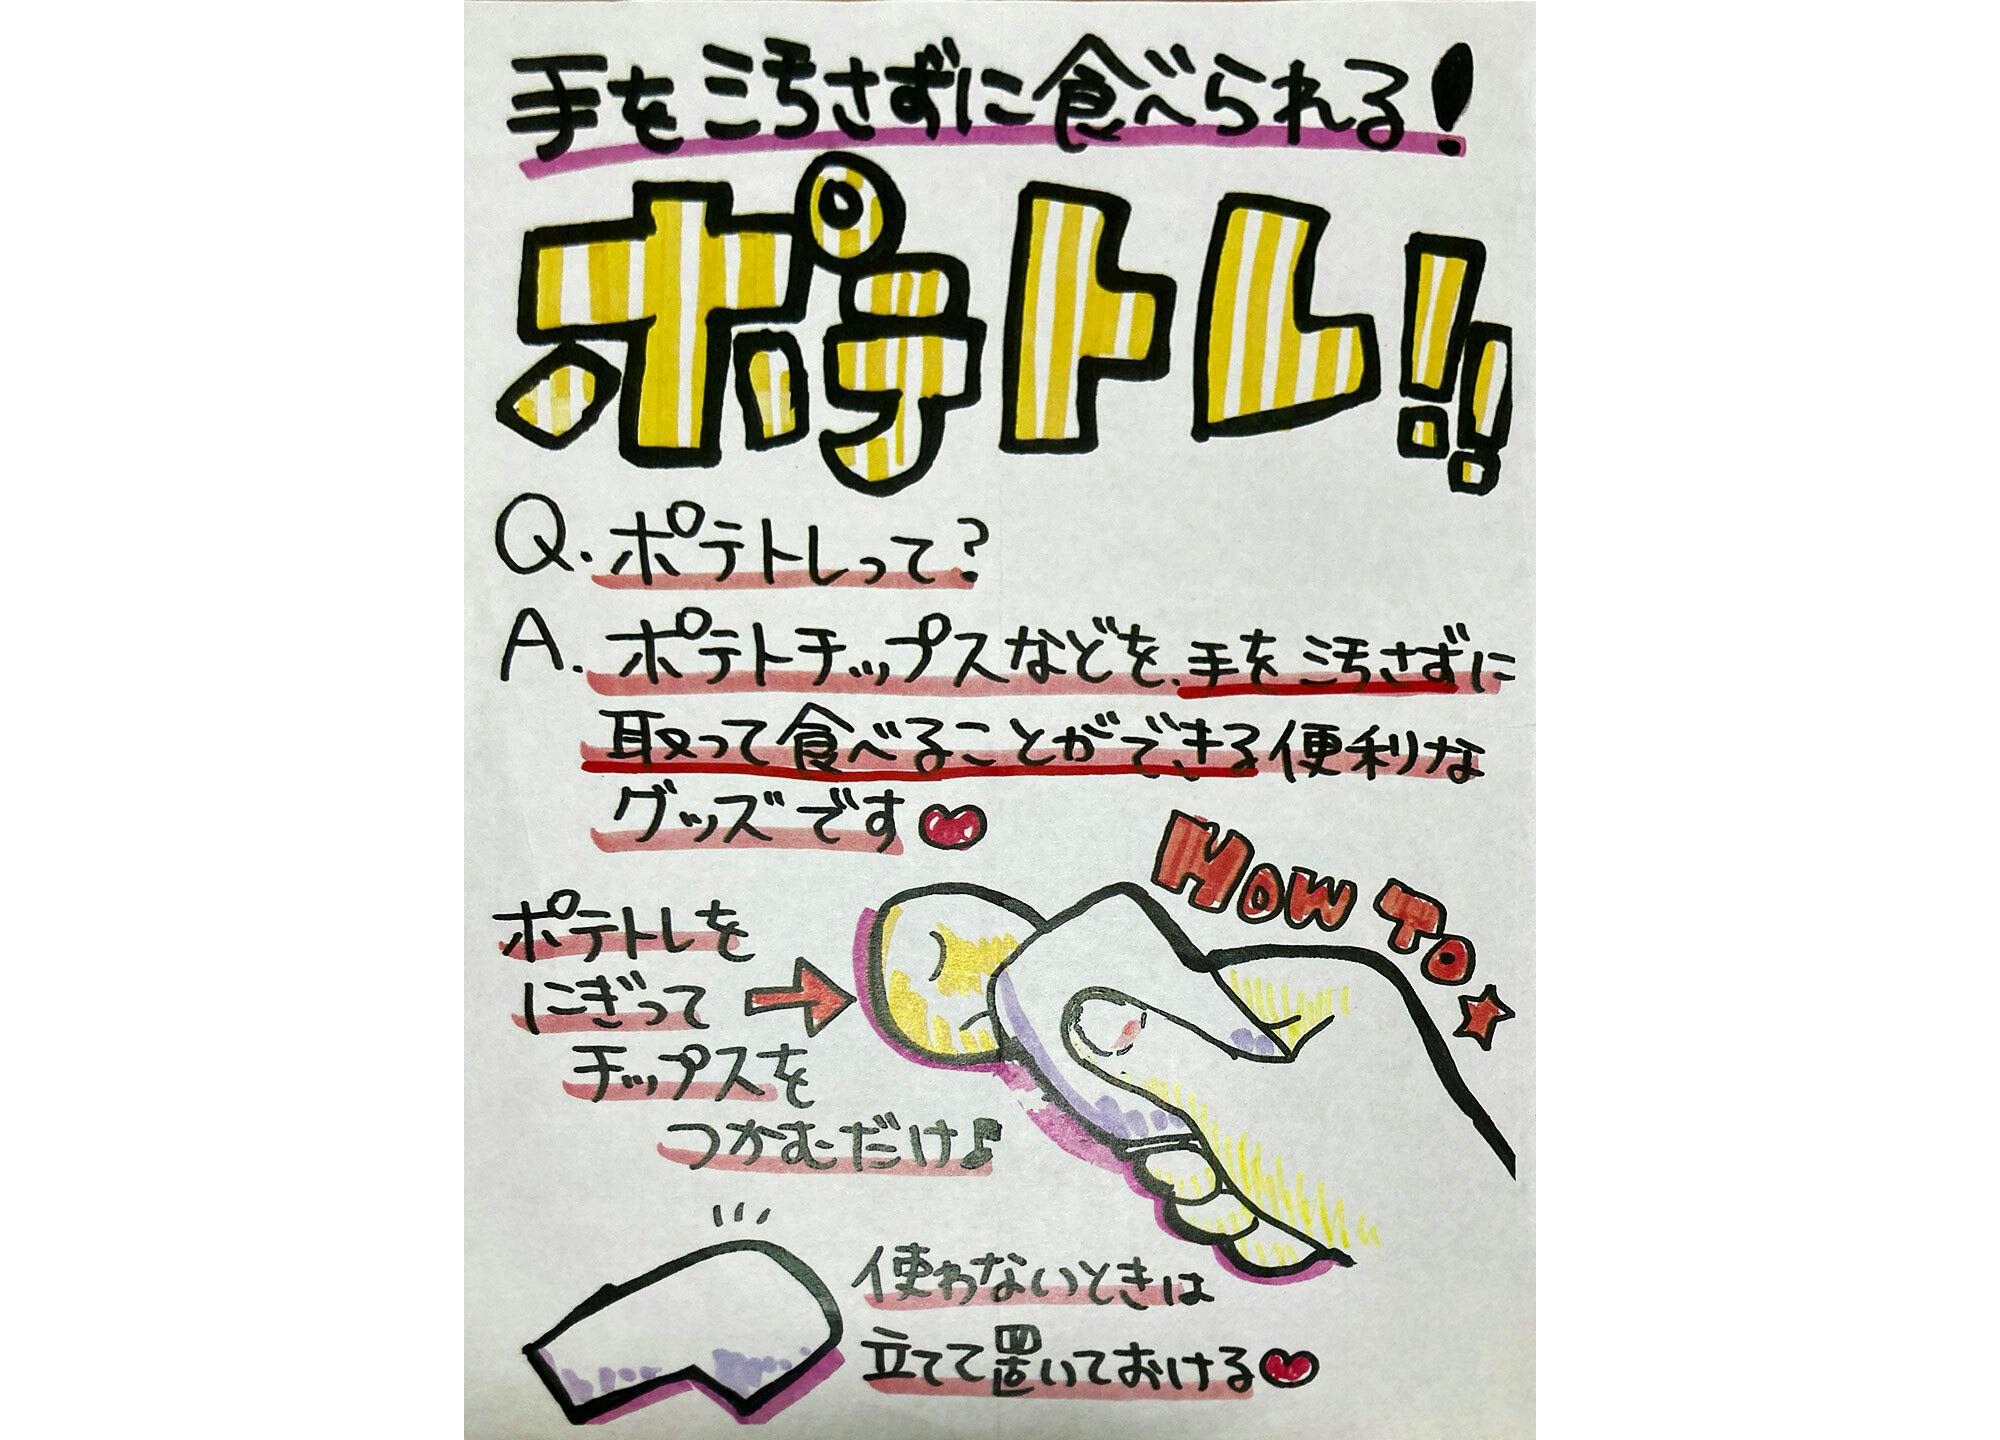 手を汚さずに食べられる!
ポテトル!!
Q.ポテトルって?
A.ポテトチップスなどを、手を汚さずに
取って食べることができる便利な
グッズです♥
HOW TO★
ポテトルを
にぎって
チップスを
つかむだけ♪
使わないときは
立てて置いておける♥